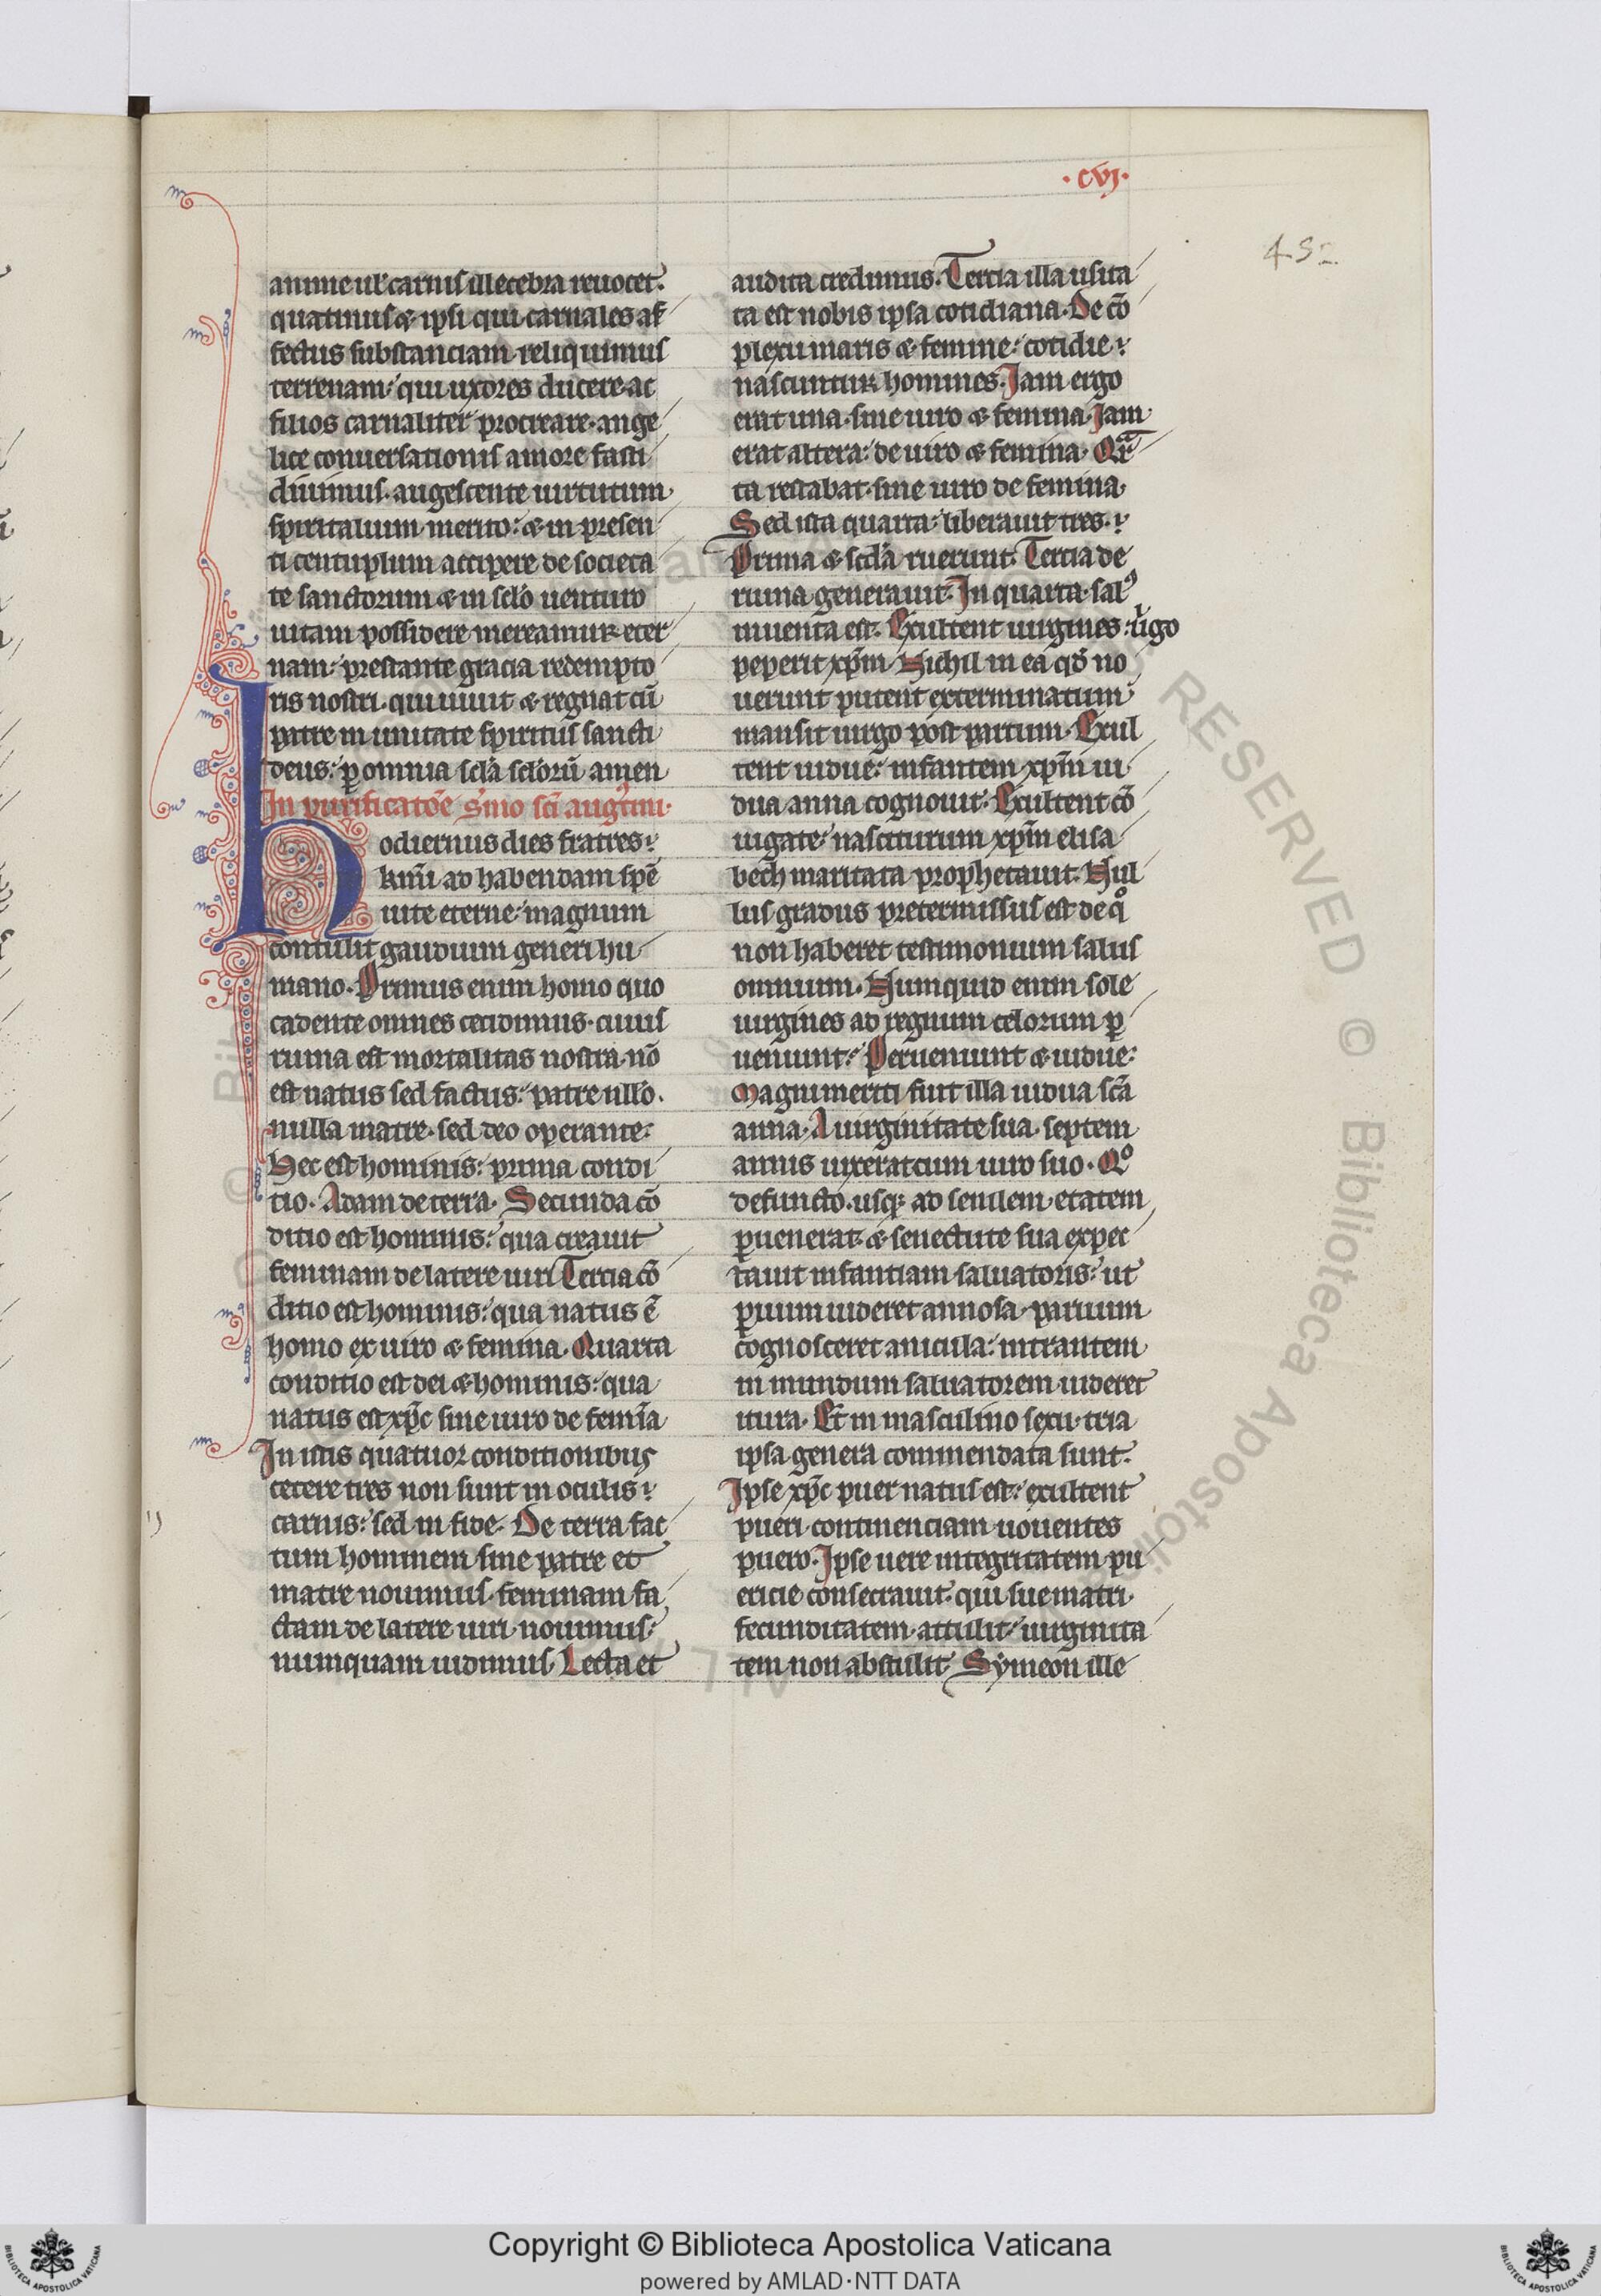 · cvj ·
43
anime ul' carnis illecebra reuocet.
quatinus & ipsi qui carnales af
fectus substanciam reliquimus
terrenam: qui uxores ducere ac
filios carnaliter procreare ange
lice conuersationis amore fasti
diuimus. augescente uirtutum
spiritalium merito: & in presen
ti centuplum accipere de societa
te sanctorum & in sclo uenturo
uitam possidere mereamur eter
nam: prestante gracia redempto
ris nostri. qui uiuit & regnat cū
patre in unitate spiritus sancti
deus: ꝑ omnia scla sclorū amen
In purificatōe smo sci augᵒtini.
Hodiernus dies fratres:
kmi ad habendam spē
uite eterne: magnum
contulit gaudium generi hu
mano. Primus enim homo quo
cadente omnes cecidimus. cuius
ruina est mortalitas nostra. nō
est natus sed factus: patre nllo.
nulla matre. sed deo operante:
Hec est hominis: prima condi
tio. Adam de terra. Secunda cō
ditio est hominis: qua creauit
feminam de latere uiri Tercia cō
ditio est hominis: qua natus ē
homo ex uiro & femina. Quarta
conditio est dei & hominis: qua
natus est xp̄c sine uiro de femīa
In istis quatuor conditionibus
cetere tres non sunt in oculis:
carnis: sed in fide. De terra fac
tum hominem sine patre et
matre nouimus. feminam fa
ctam de latere uiri nouimus:
numquam uidimus. Lecta et
audita credimus. Tercia illa usita
ta est nobis ipsa cotidiana. De cō
plexu maris & femine: cotidie:
nascuntur homines. Jam ergo
erat una. sine uiro & femina. Jam
erat altera: de uiro & femina. Qrᵃ
ta restabat. sine uiro de femina.
Sed ista quarta: liberauit tres.
Prima & scda ruerunt. Tercia de
ruina generauit. In quarta. salᵒ
inuenta est. Exultent uirgines: uͥgo
peperit xp̄m. Nichil in ea qd no
uerunt putent exterminatum
mansit uirgo post partum. Exul
tent uidue: infantem xp̄m ui
dua anna cognouit. Exultent cō
iugate: nasciturum xp̄m elisa
beth maritata prophetauit. Nul
lus gradus pretermissus est de qᵒ
non haberet testimonium salus
omnium. Numquid enim sole
uirgines ad regnum celorum ꝑ
ueniunt: Perueniunt & uidue:
Magni meriti fuit illa uidua scā
anna. A uirginitate sua. septem
annis uixerat cum uiro suo. Qᵒ
defuncto. usqꝫ ad senilem etatem
ꝑuenerat. & senectute sua expec
tauit infantiam saluatoris: ut
ꝑuum uideret annosa. paruum
cognosceret anicula: intrantem
in mundum saluatorem uideret
itura. Et in masculino sexu. tria
ipsa genera commendata sunt.
Ipse xp̄c puer natus est: exultent
pueri continenciam uouentes
puero. Ipse uere integritatem pu
ericie consecrauit. qui sue matri.
fecunditatem attulit: uirginita
tem non abstulit. Symeon ille
Copyright © Biblioteca Apostolica Vaticana
powered by AMLAD·NTT DATA